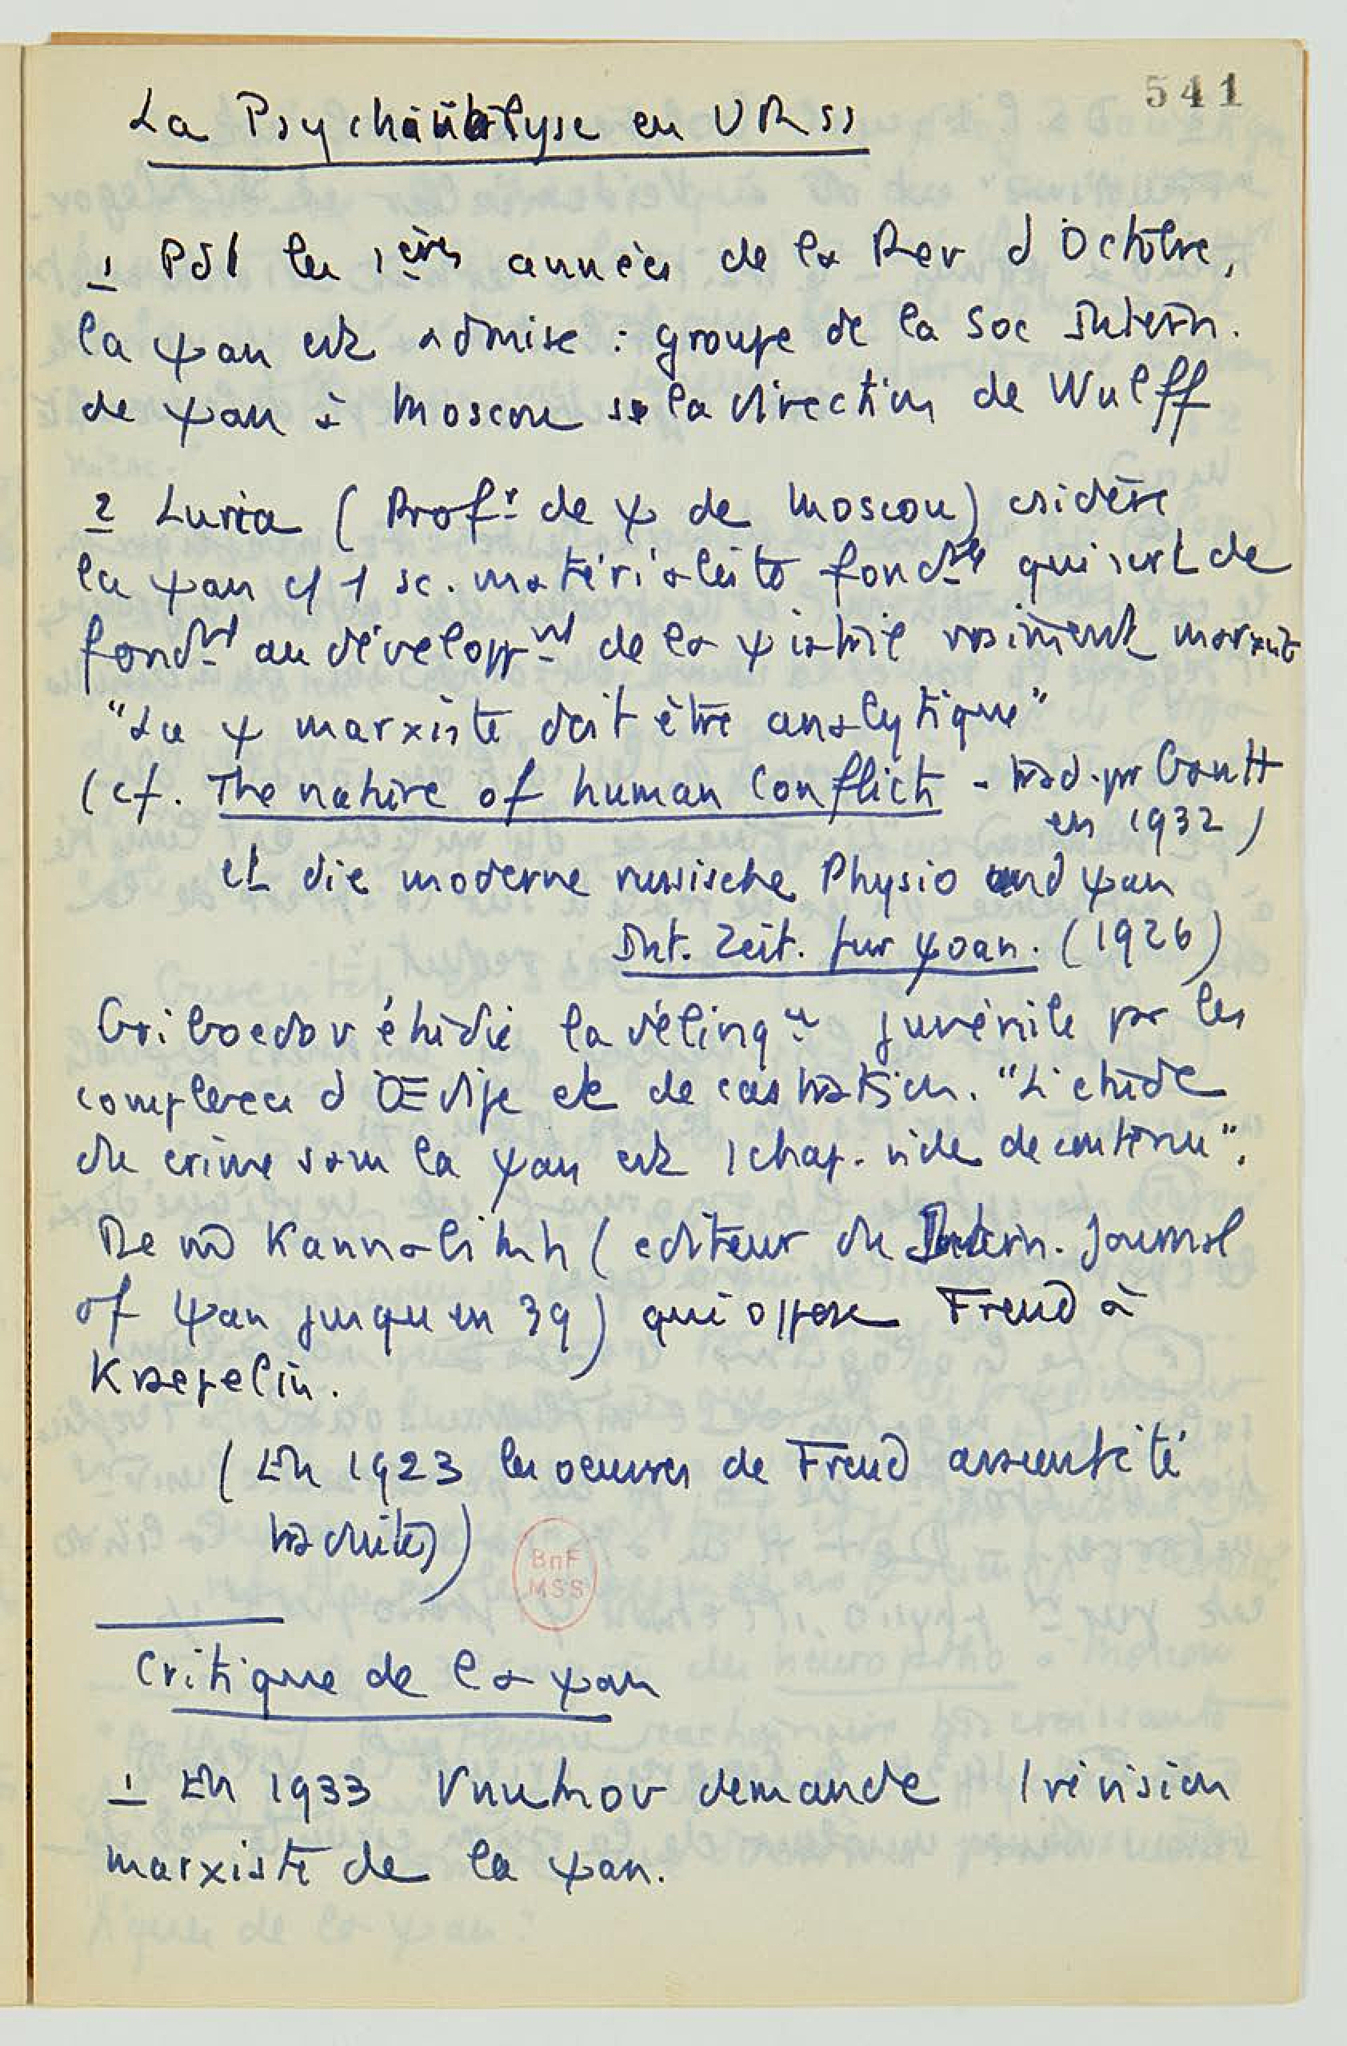 541
La Psychanalyse en URSS
1 Pdt les 1ères années de la Rev d'Octobre,
la ψan est admise : groupe de la Soc Intern.
de ψan à Moscou ss la direction de Wulff
2 Luria (Profr de ψ de Moscou) csidère
la ψan c/ 1 sc. matérialiste fondle qui sert de
fondmt au développmt de la ψ vraiment marxiste
"La ψ marxiste doit être analytique"
(cf. The nature of human Conflict - trad. pr Gantt
en 1932)
et die moderne russische Physio und ψan
Int. Zeit. fur ψoan. (1926)
Griboedov étudie la délinqce juvénile par les
complexes d'Œdipe et de castration. "L'étude
du crime sans la ψan est 1 chap. vide de contenu".
De m̂ Kannabikh (editeur du Intern. Journal
of ψan jusqu'en 39) qui oppose Freud à
Kraepelin.
(En 1923 les oeuvres de Freud avaient été
traduites)
BnF
MSS
Critique de la ψan
1 En 1933 Vnukov demande 1 révision
marxiste de la ψan.